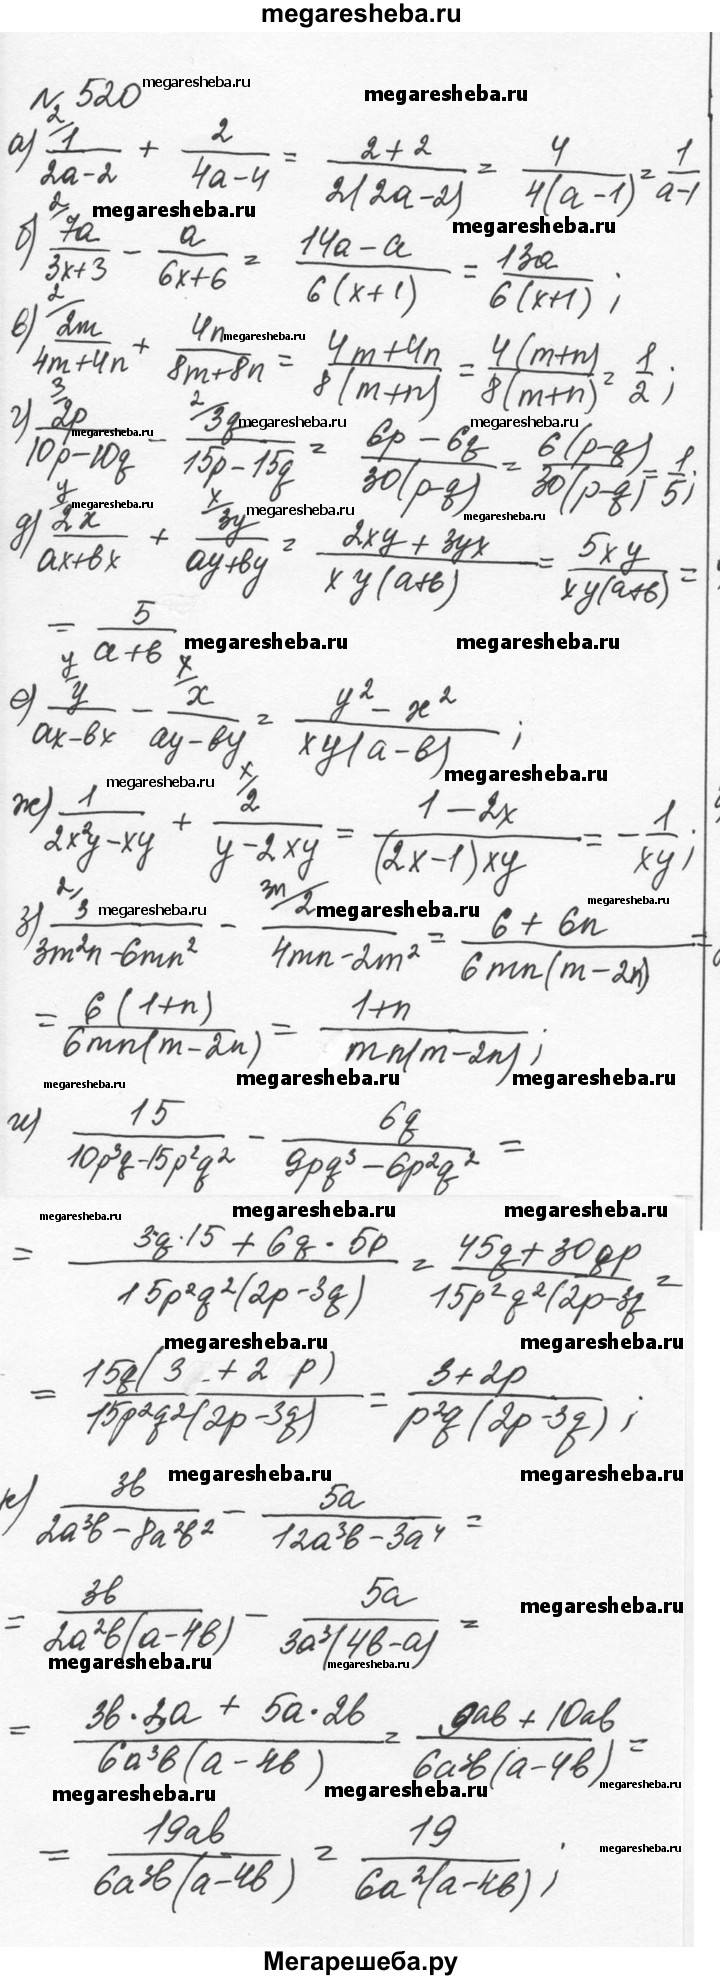 megaresheba.ru
№ 520 megaresheba.ru megaresheba.ru
а) 2/ 1/(2a-2) + 2/(4a-4) = (2+2)/(2(2a-2)) = 4/(4(a-1)) = 1/(a-1)
megaresheba.ru megaresheba.ru
б) 2/ 7a/(3x+3) - a/(6x+6) = (14a-a)/(6(x+1)) = 13a/(6(x+1));
в) 2/ 2m/(4m+4n) + 4n/(8m+8n) = (4m+4n)/(8(m+n)) = 4(m+n)/(8(m+n)) = 1/2;
megaresheba.ru megaresheba.ru
megaresheba.ru megaresheba.ru megaresheba.ru
г) 3/ 2p/(10p-10q) - 2/ 3q/(15p-15q) = (6p-6q)/(30(p-q)) = 6(p-q)/(30(p-q)) = 1/5;
megaresheba.ru megaresheba.ru megaresheba.ru
д) y/ 2x/(ax+bx) + x/ 3y/(ay+by) = (2xy+3yx)/(xy(a+b)) = 5xy/(xy(a+b)) =
= 5/(a+b) megaresheba.ru megaresheba.ru
е) y/ y/(ax-bx) - x/ x/(ay-by) = (y²-x²)/(xy(a-b));
megaresheba.ru megaresheba.ru
ж) 1/(2x²y-xy) + x/ 2/(y-2xy) = (1-2x)/((2x-1)xy) = -1/(xy);
megaresheba.ru megaresheba.ru megaresheba.ru
з) 2/ 3/(3m²n-6mn²) - 3n/ 2/(4mn-2m²) = (6+6n)/(6mn(m-2n)) =
= 6(1+n)/(6mn(m-2n)) = (1+n)/(mn(m-2n));
megaresheba.ru megaresheba.ru megaresheba.ru
и) 15/(10p³q-15p²q²) - 6q/(9pq³-6p²q²) =
megaresheba.ru megaresheba.ru megaresheba.ru
= (3q·15+6q·5p)/(15p²q²(2p-3q)) = (45q+30qp)/(15p²q²(2p-3q =
megaresheba.ru megaresheba.ru
= 15q(3+2p)/(15p²q²(2p-3q)) = (3+2p)/(p²q(2p-3q));
megaresheba.ru megaresheba.ru
к) 3b/(2a³b-8a²b²) - 5a/(12a³b-3a⁴) =
= 3b/(2a²b(a-4b)) - 5a/(3a³(4b-a)) =
megaresheba.ru
megaresheba.ru megaresheba.ru
= (3b·3a+5a·2b)/(6a³b(a-4b)) = (9ab+10ab)/(6a³b(a-4b)) =
megaresheba.ru megaresheba.ru megaresheba.ru
= 19ab/(6a³b(a-4b)) = 19/(6a²(a-4b));
megaresheba.ru
Мегарешеба.ру